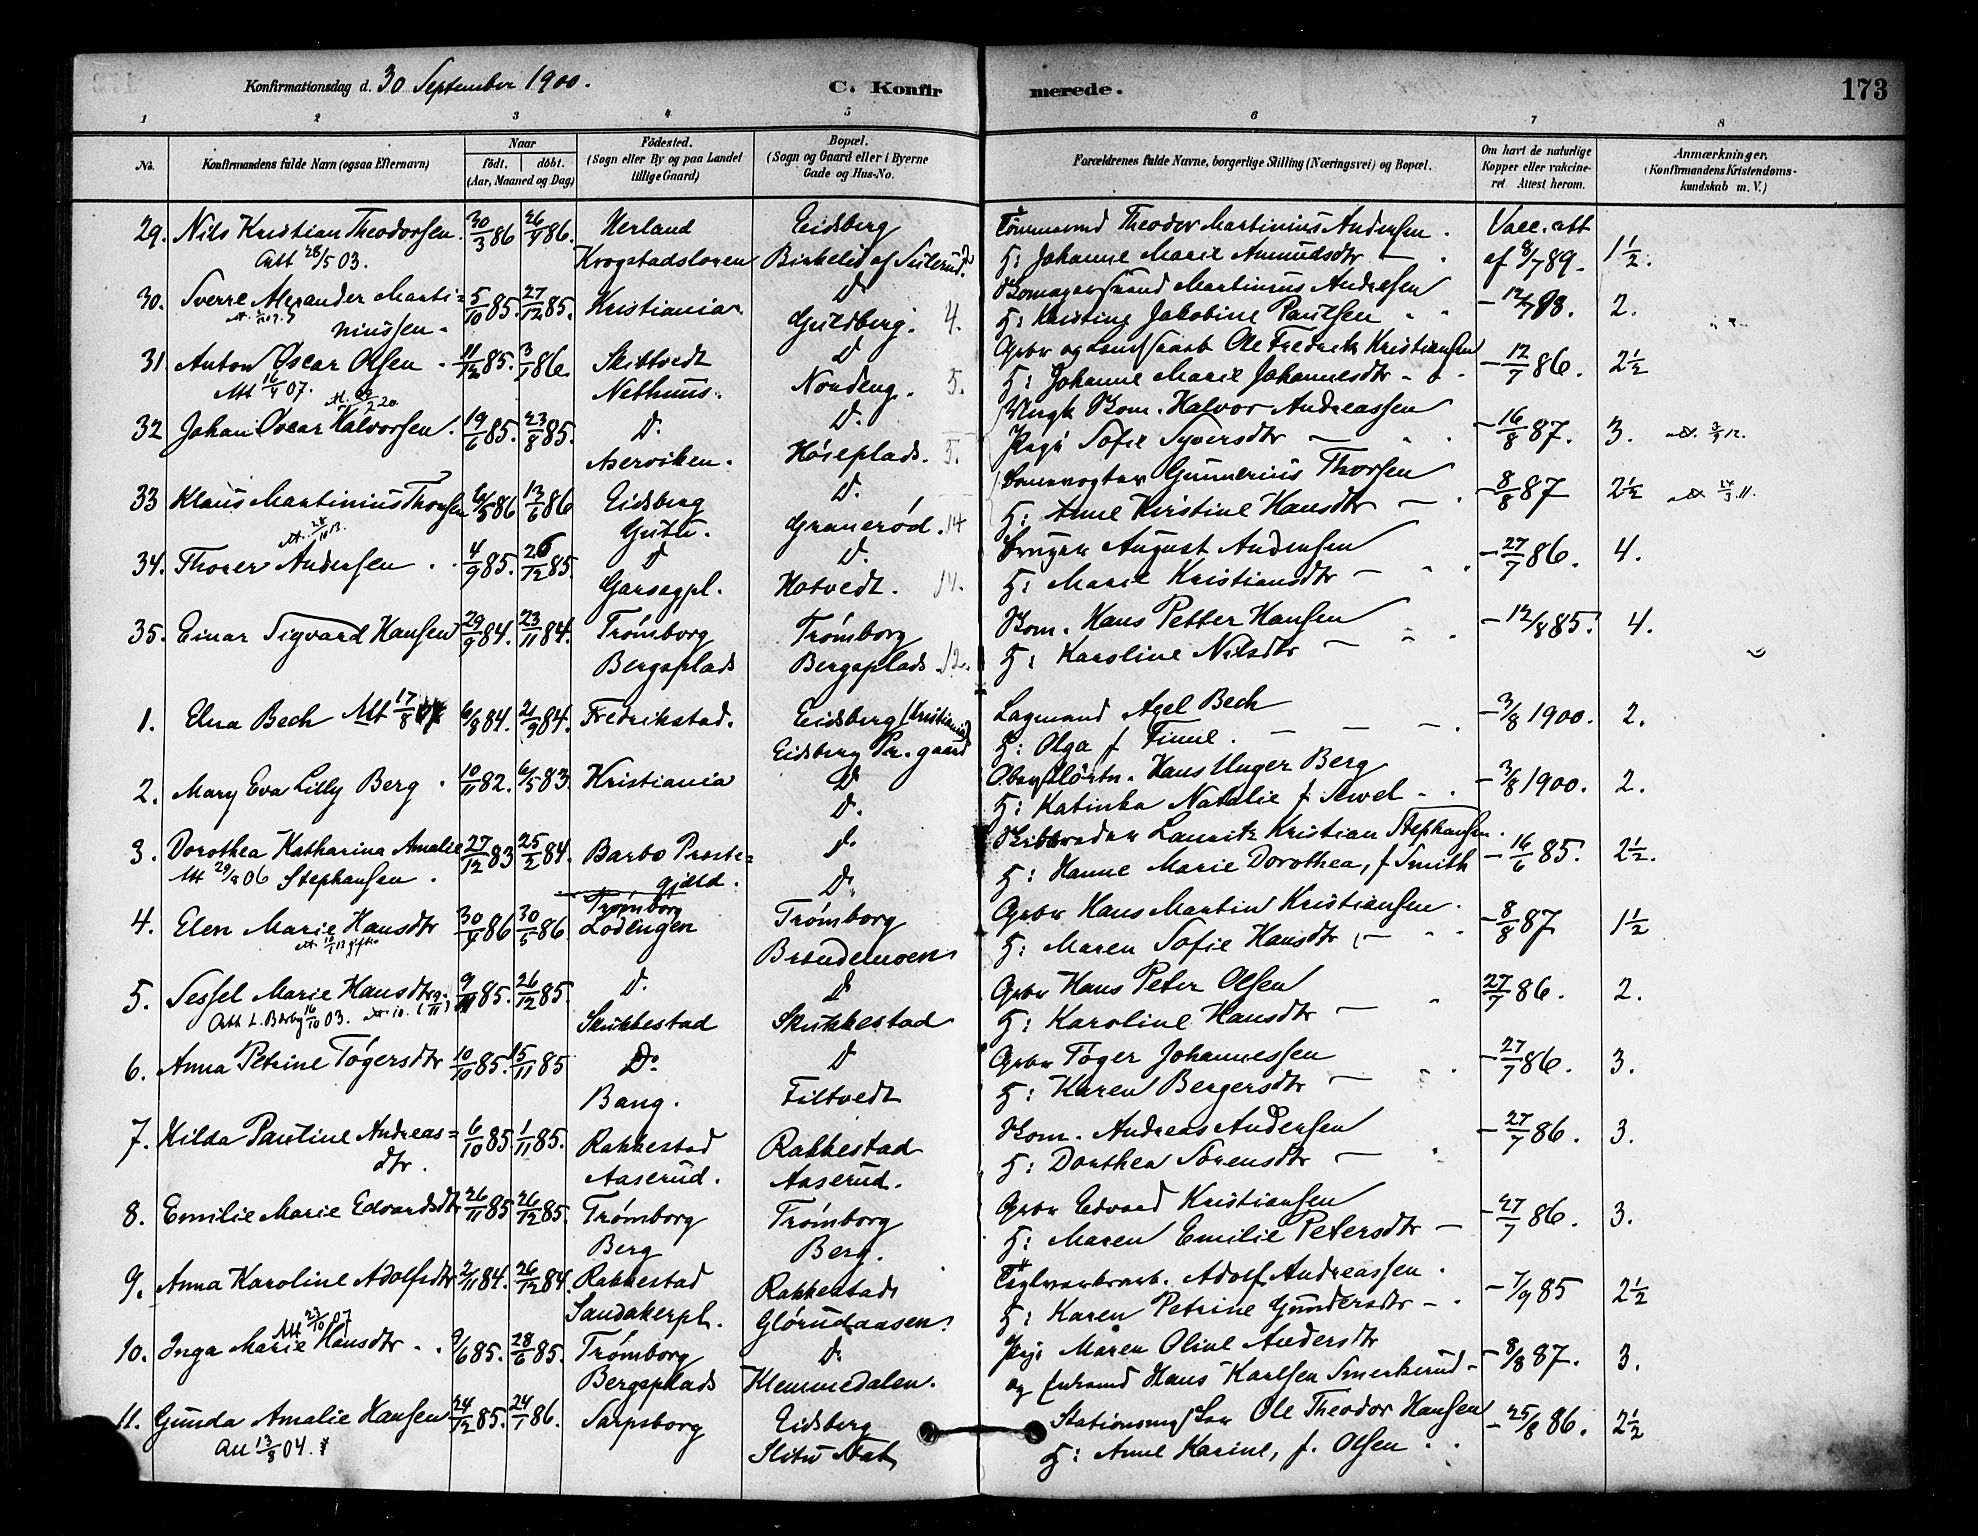 Konfirmationsdag d. 30 September 1900. C. Konfirmerede. 173
1 2 3 4 5 6 7 8
No. Konfirmandens fulde Navn (ogsaa Efternavn) Naar født. døbt. (Aar, Maaned og Dag) Fødested. (Sogn eller By og paa Landet tillige Gaard) Bopæl. (Sogn og Gaard eller i Byerne Gade og Hus-No. Forældrenes fulde Navne, borgerlige Stilling (Næringsvei) og Bopæl. Om havt de naturlige Kopper eller vakcineret Attest herom. Anmærkninger. (Konfirmandens Kristendomskundskab m. V.)
29. Nils Kristian Theodorsen. 30/3 86 26/4 86. Herland Eidsberg Theodor Martinius Andersen. Vacc. att
Att 28/5 03. Krogstadsloren Birkelid af Sulerud H: Johanne Marie Amundsdtr — af 8/7 89. 1½.
30. Sverre Alexander Marti= 5/10 85. 27/12 85. Kristiania D Martinius Andresen
niussen. Guldberg. 4. H: Kristine Jakobine Paulsen - 12/7 88. 2.
31 Anton Oscar Olsen 11/12 85. 3/1 86. Skiptvedt D Grbr og Ole Fredrik Kristiansen
Att 16/4 07. Nethuus. Nordeng. 5. H: Johanne Marie Johannesdtr - 12/7 86. 2½
32 Johan Oscar Halvorsen. 19/6 85. 23/8 85. D. D. Ungk. Halvor Andreassen
Aserviken. Høieplads. 5. Pige Sofie Syversdtr — - 16/8 87. 3.
33 Klaus Martinius Thorsen 6/5 86 13/6 86 Eidsberg D. Banevogter Gunnerius Thorsen
Gutu. Granerød. 14 H: Anne Kirstine Hansdtr — - 8/8 87 2½
34. Thorer Andersen 4/9 85. 26/12 85. D D. Bruger August Andersen
Garsegpl. Hotvedt. 14. H: Marie Kristiansdtr — - 27/7 86. 4.
35. Einar Sigvard Hansen 29/9 84. 23/11 84. Trømborg Trømborg Hans Petter Hansen - 12/8 85. 4.
Bergsplads Bergsplads 12. H: Karoline Nilsdtr —
1. Elna Bech Att 17/8 6/8 84. 21/9 84. Fredrikstad. Eidsberg (Kristiania) Lagmand Axel Bech - 3/8 1900. 2.
Eidsberg Pr. gaard H: Olga f Finne.
2. Mary Eva Lilly Berg 10/11 82. 6/5 83. Kristiania D Hans Unger Berg - 3/8 1900. 2.
D. H: Katinka Natalie f Sewel
3. Dorothea Katharina Amalie 27/12 83 25/2 84. Barbo Præste= D. Skibsreder Lauritz Kristian Stephansen. - 16/6 85. 2½.
Stephansen gjæld. D. H: Hanne Marie Dorothea, f Smith
4. Elen Marie Hansdtr 30/4 86 30/5 86. Trømborg Trømborg Grbr Hans Martin Kristiansen. - 8/8 87 1½
Lødengen Brændemoen H: Maren Sofie Hansdtr
5. Sessel Marie Hansdtr 9/11 85. 26/12 85. D. D Grbr Hans Peter Olsen 27/7 86. 2.
16/10 03. Skukkestad Skukkestad H: Karoline Hansdtr —
6. Anna Petrine Tøgersdtr 10/10 85. 15/11 85 D. D Grbr Tøger Johannessen - 27/7 86. 3.
Bang. Filtvedt H: Karen Bergersdtr —
7. Hilda Pauline Andreas= 6/10 85. 1/11 85. Rakkestad Rakkestad Andreas Andersen - 27/7 86. 3.
dtr. Aaserud. Aaserud. H: Dorthea Sørensdtr —
8. Emilie Marie Edvardsdtr 26/11 85 26/12 85. Trømborg Trømborg Grbr Edvard Kristiansen - 27/7 86. 3.
Berg Berg. H: Maren Emilie Petersdtr —
9. Anna Karoline Adolfsdtr 2/11 84. 26/12 84. Rakkestad Rakkestad Teglverksarb. Adolf Andreassen. - 7/9 85 2½
Sandakerpl. Glørudaasen. H: Karen Petrine Gundersdtr
Att 23/10 07
10. Inga Marie Hansdtr 9/6 85. 28/6 85. Trømborg D. Pige Maren Oline Andersdtr - 8/8 87. 3.
Bergsplads Klemmedalen. og Hans Karlsen Smerkerud
11. Gunda Amalie Hansen 24/12 85. 24/1 86. Sarpsborg Eidsberg Ole Theodor Hansen - 25/8 86. 2½
Att 13/8 04. Slitu Stat. H: Anne Karine, f. Olsen